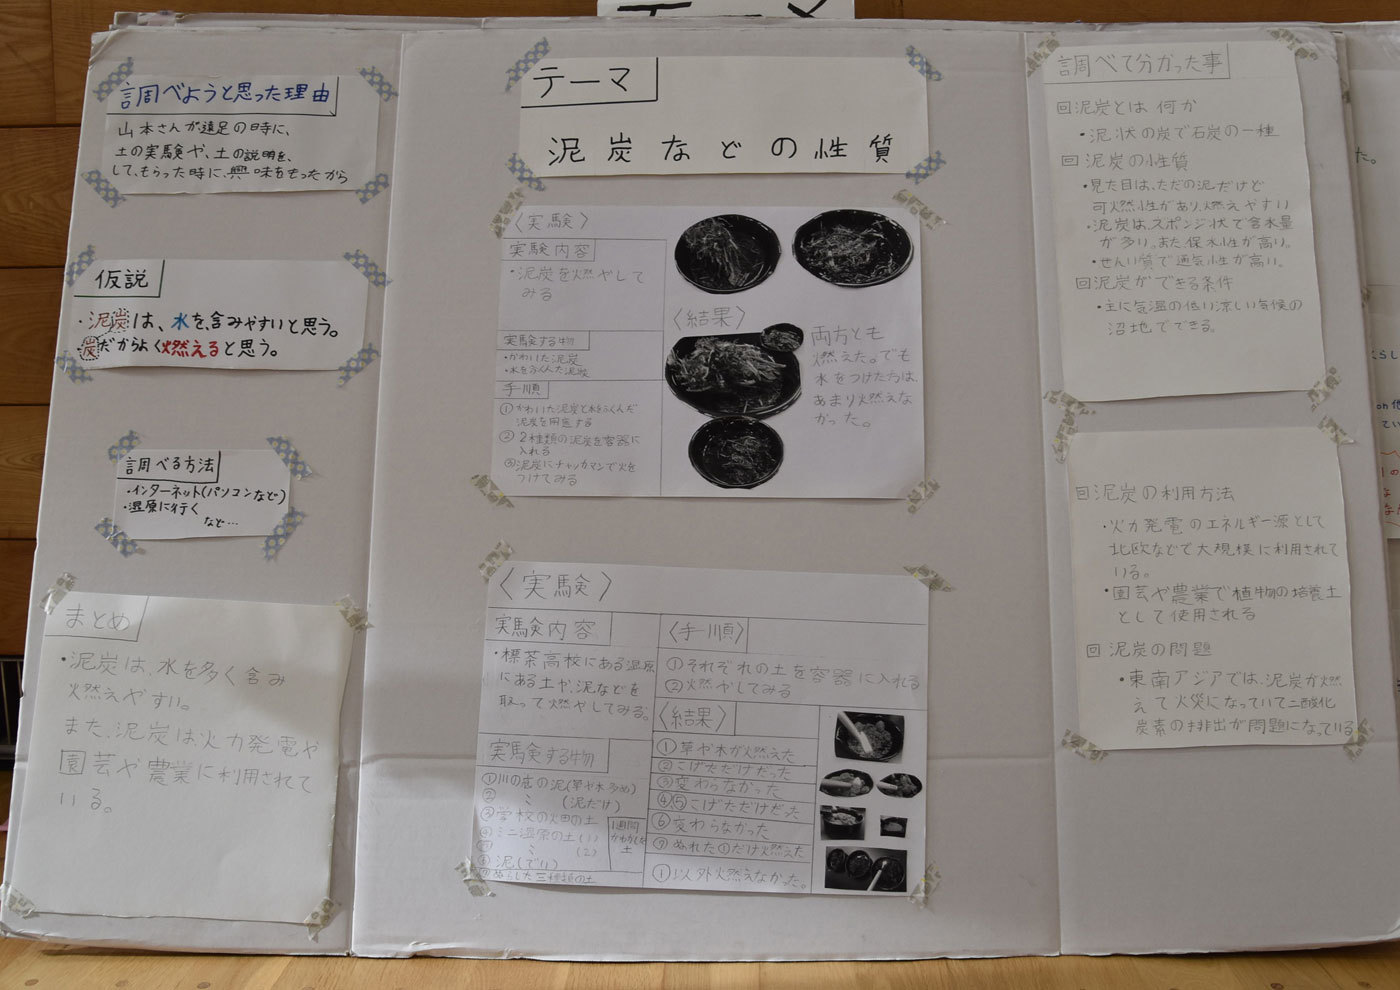 テーマ
調べようと思った理由
山本さんが遠足の時に、
土の実験や、土の説明を、
して、もらった時に、興味をもったから
仮説
・泥炭は、水を、含みやすいと思う。
炭だからよく燃えると思う。
調べる方法
・インターネット(パソコンなど)
・湿原に行く
など…
まとめ
・泥炭は、水を多く含み
燃えやすい。
また、泥炭は火力発電や
園芸や農業に利用されて
いる。
テーマ
泥炭などの性質
〈実験〉
実験内容
・泥炭を燃やして
みる
実験する物
・かわいた泥炭
・水をふくんだ泥炭
手順
①かわいた泥炭と水をふくんだ
泥炭を用意する
②2種類の泥炭を容器に
入れる
③泥炭にチャッカマンで火を
つけてみる
〈結果〉
両方とも
燃えた。でも
水をつけた方は、
あまり燃えな
かった。
〈実験〉
実験内容
・標茶高校にある湿原
にある土や、泥などを
取って燃やしてみる。
実験する物
①川の底の泥(草や木多め)
② 〃 (泥だけ)
③学校の畑の土
④ミニ湿原の土(1)
⑤ 〃 (2)
⑥泥(でい)
⑦ぬらした三種類の土
1週間
かわかした
土
〈手順〉
①それぞれの土を容器に入れる
②燃やしてみる
〈結果〉
①草や木が燃えた
②こげただけだった
③変わらなかった
④⑤こげただけだった
⑥変わらなかった
⑦ぬれた①だけ燃えた
①以外燃えなかった。
調べて分かった事
回泥炭とは何か
・泥状の炭で石炭の一種
回泥炭の性質
・見た目は、ただの泥だけど
可燃性があり、燃えやすい
・泥炭は、スポンジ状で含水量
が多い。また保水性が高い。
・せんい質で通気性が高い。
回泥炭ができる条件
・主に気温の低い涼しい気候の
沼地でできる。
回泥炭の利用方法
・火力発電のエネルギー源として
北欧などで大規模に利用されて
いる。
・園芸や農業で植物の培養土
として使用される
回泥炭の問題
・東南アジアでは、泥炭が燃
えて火災になっていて二酸化
炭素の排出が問題になっている
た。